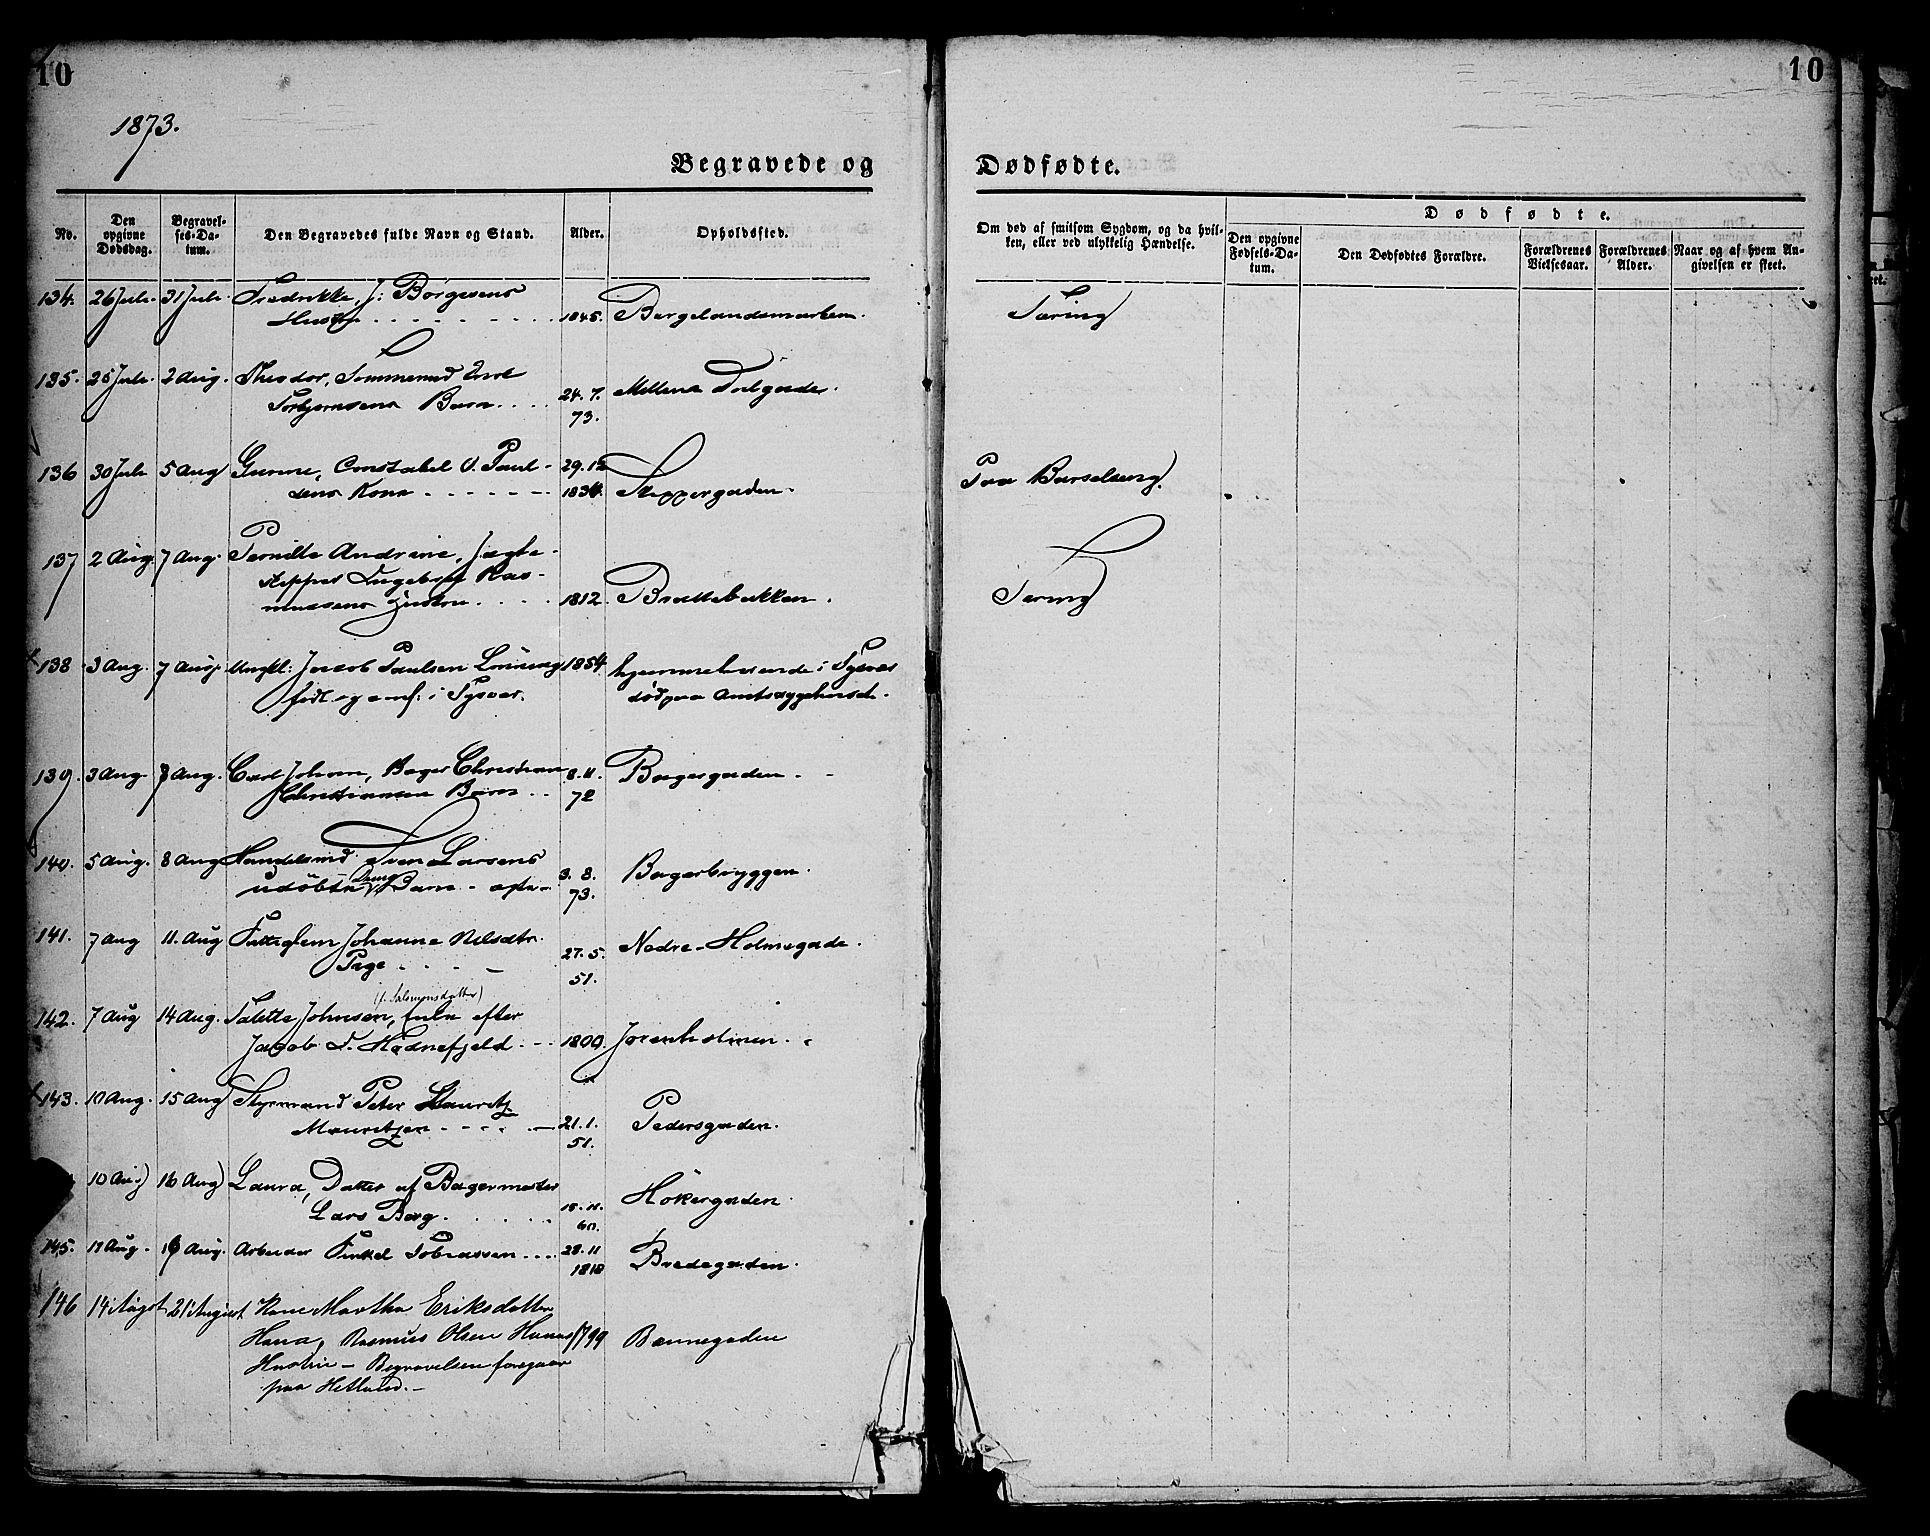 10
10
1873.
Begravede og
Dødfødte.
No.
Den opgivne Dødsdag.
Begravelses-Datum.
Den Begravedes fulde Navn og Stand.
Alder.
Opholdssted.
Om død af smitsom Sygdom, og da hvilken, eller ved ulykkelig Hændelse.
Dødfødte.
Den opgivne Fødsels-Datum.
Den Dødfødtes Forældre.
Forældrenes Vielsesaar.
Forældrenes Alder.
Naar og af hvem Angivelsen er skeet.
134. 26 Juli. 31 Juli. Fredrikke, J. Børgesens
Hustru 1845. Bergelandsmarken. Tæring
135. 25 Juli. 2 Aug. Theodor, Tømmermd
Torbjørnsens Barn 24. 7. 73.
136 30 Juli 5 Aug Gunne, Constabel O. Paul-
sens Kone 29. 12 1834. Steppergaden. Paa Barselseng.
137 2 Aug. 7 Aug. Pernille Andrine, Jagte-
skipper Ingebret Ras-
mussens Hustru 1812. Brattebakken. Tæring
138 3 Aug. 7 Aug. Ungkl: Jacob Paulsen 1854 hjemmehørende i Tysvær
født og conf: i Tysvær. død paa Amtssygehuset.
139. 3 Aug. 7 Aug. Carl Johan, Bager Christian
Christiansen Barn 8. 11. 72 Bagergaden.
140. 5 Aug. 8 Aug Handelsmd Sven Larsens
udøbte Dreng Barn 3. 8. 73. Bagerbryggen.
141. 7 Aug 11. Aug Fattiglem Johanne Nilsdtr.
27. 5. 51. Nedre-Holmegade.
142. 7 Aug 14 Aug. Talette Johnsen, (f. Salomonsdatter) Enke efter
Jacob D. Hadnefjeld 1800. Jorenholmen.
143. 10 Aug. 15 Aug Styrmand Peter Lauritz
Mauritzen 21. 1. 51. Pedersgaden.
10 Aug 16 Aug Laura, Datter af Bagermester
Lars Berg. 60. Høkergaden.
145. 11 Aug. 19 Aug. Arbeider Tobiassen 28. 11 1818 Bredegaden.
146 14 August 21 August Kone Martha Eriksdatter
Hana, Rasmus Olsen Hanas 1799 Bannegaden
Hustru - Begravelsen foregaar
paa Hetland.-